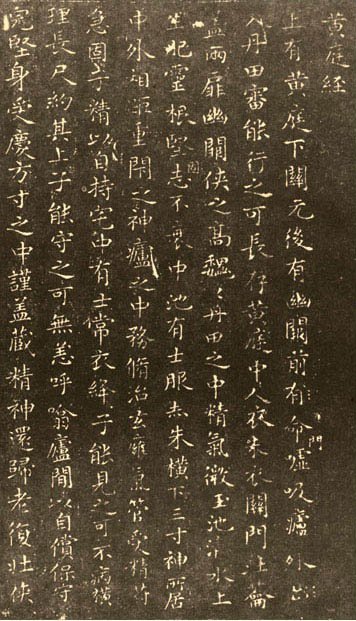 黄庭経
上有黄庭下關元後有幽闕前有命門嘘吸廬外出
入丹田審能行之可長存黄庭中人衣朱衣關門壯蘥
蓋兩扉幽闕侠之高魏〻丹田之中精氣微玉池清水上
生肥靈根堅固志不衰中池有士服赤朱横下三寸神所居
中外相距重閇之神廬之中務脩治玄雍氣管受精符
急固子精以自持宅中有士常衣絳子能見之可不病横
理長尺約其上子能守之可無恙呼噏廬閒以自償保守
完堅身受慶方寸之中謹盖藏精神還歸老復壯侠